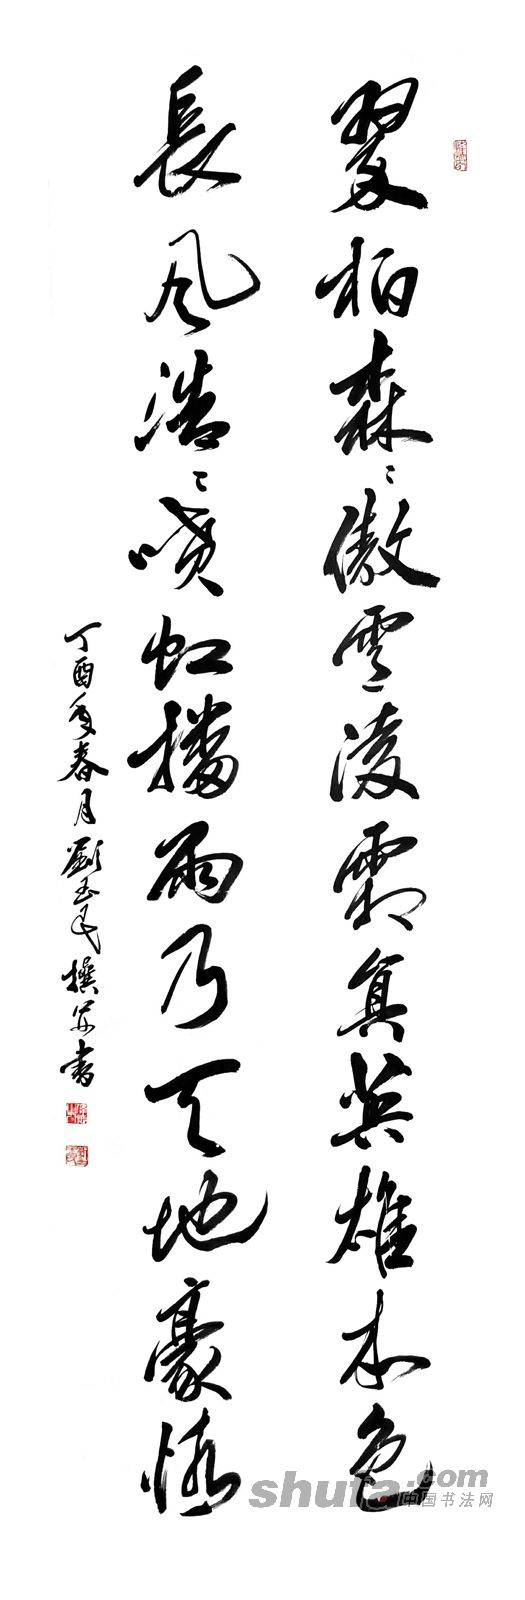 翠柏森〻傲雪凌霜真英雄本色
長风浩〻喷虹播雨乃天地豪情
丁酉年春月劉玉民撰并书
shufa.com
中国书法网